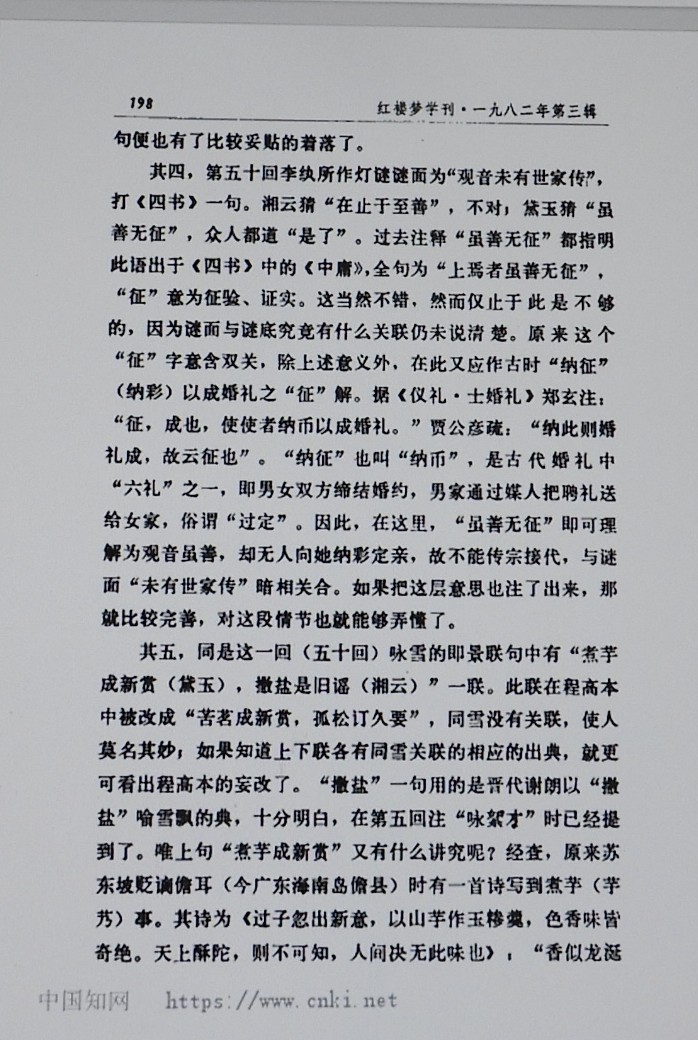 198
红楼梦学刊·一九八二年第三辑
句便也有了比较妥贴的着落了。
其四，第五十回李纨所作灯谜谜面为“观音未有世家传”，
打《四书》一句。湘云猜“在止于至善”，不对；黛玉猜“虽
善无征”，众人都道“是了”。过去注释“虽善无征”都指明
此语出于《四书》中的《中庸》，全句为“上焉者虽善无征”，
“征”意为征验、证实。这当然不错，然而仅止于此是不够
的，因为谜面与谜底究竟有什么关联仍未说清楚。原来这个
“征”字意含双关，除上述意义外，在此又应作古时“纳征”
（纳彩）以成婚礼之“征”解。据《仪礼·士婚礼》郑玄注：
“征，成也，使使者纳币以成婚礼。”贾公彦疏：“纳此则婚
礼成，故云征也”。“纳征”也叫“纳币”，是古代婚礼中
“六礼”之一，即男女双方缔结婚约，男家通过媒人把聘礼送
给女家，俗谓“过定”。因此，在这里，“虽善无征”即可理
解为观音虽善，却无人向她纳彩定亲，故不能传宗接代，与谜
面“未有世家传”暗相关合。如果把这层意思也注了出来，那
就比较完善，对这段情节也就能够弄懂了。
其五，同是这一回（五十回）咏雪的即景联句中有“煮芋
成新赏（黛玉），撒盐是旧谣（湘云）”一联。此联在程高本
中被改成“苦茗成新赏，孤松订久要”，同雪没有关联，使人
莫名其妙；如果知道上下联各有同雪关联的相应的出典，就更
可看出程高本的妄改了。“撒盐”一句用的是晋代谢朗以“撒
盐”喻雪飘的典，十分明白，在第五回注“咏絮才”时已经提
到了。唯上句“煮芋成新赏”又有什么讲究呢？经查，原来苏
东坡贬谪儋耳（今广东海南岛儋县）时有一首诗写到煮芋（芋
艿）事。其诗为《过子忽出新意，以山芋作玉糁羹，色香味皆
奇绝。天上酥陀，则不可知，人间决无此味也》：“香似龙涎
中国知网 https://www.cnki.net